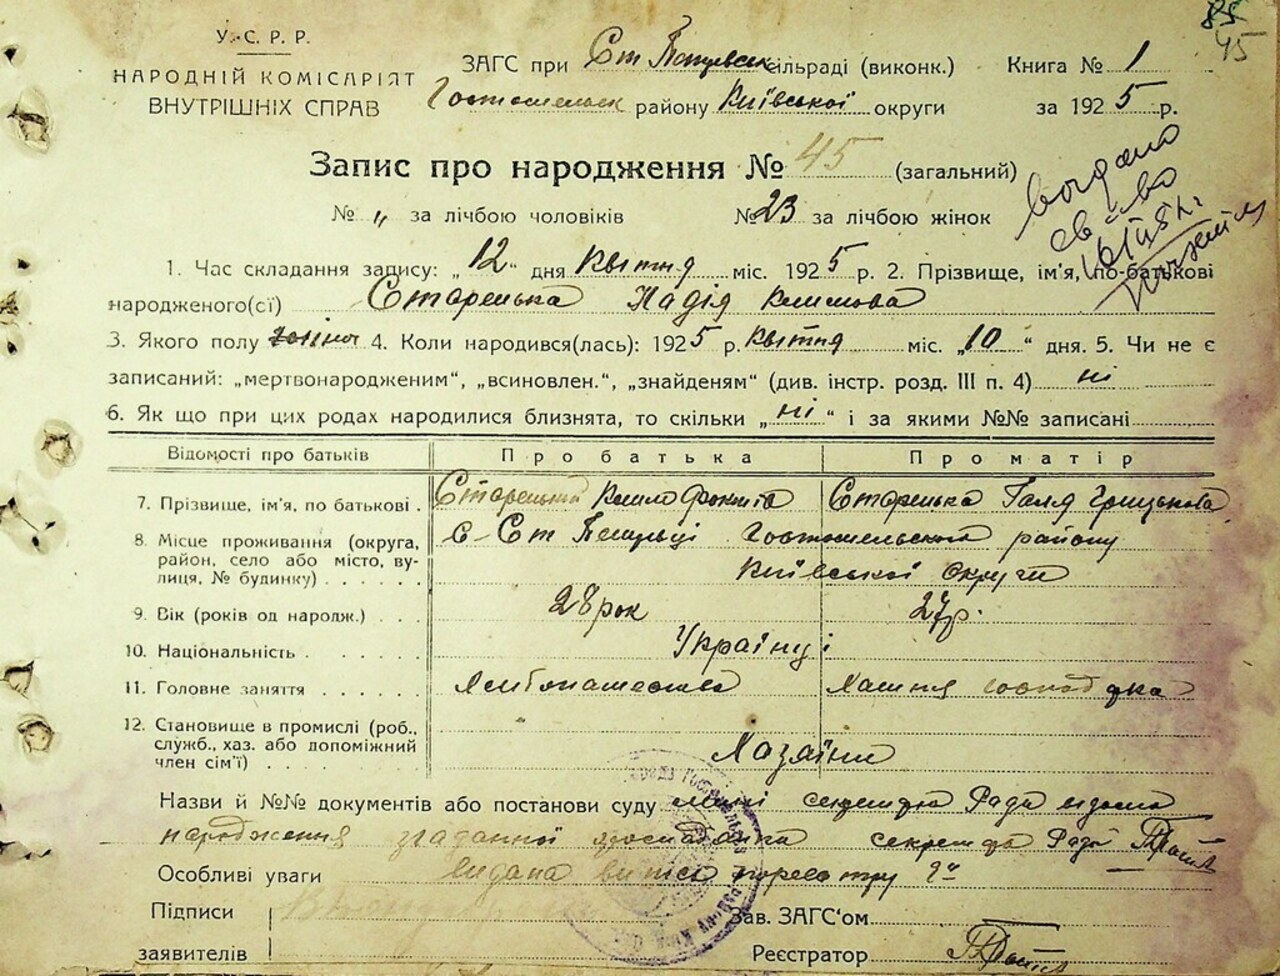 У.С.Р.Р.
НАРОДНІЙ КОМІСАРІЯТ
ВНУТРІШНІХ СПРАВ
ЗАГС при Ст сільраді (виконк.) Книга № 1
району Київської округи за 1925 р.
45
Запис про народження № 45 (загальний)
№ „ за лічбою чоловіків № 23 за лічбою жінок
видано
св-во
1. Час складання запису: „12“ дня Квітня міс. 1925 р. 2. Прізвище, ім'я, по-батькові
народженого(сї) Старенька Надія Климова
3. Якого полу жіноч 4. Коли народився(лась): 1925 р. Квітня міс. „10“ дня. 5. Чи не є
записаний: „мертвонародженим“, „всиновлен.“, „знайденям“ (див. інстр. розд. III п. 4) ні
6. Як що при цих родах народилися близнята, то скільки „ні“ і за якими №№ записані
Відомості про батьків Про батька Про матір
7. Прізвище, ім'я, по батькові . Старенький Старенька Галя Грицькова
8. Місце проживання (округа, с. Ст району
район, село або місто, ву- Київської Округи
лиця, № будинку) . . . . . .
9. Вік (років од народж.) . . . 28 рок 27 р.
10. Національність . . . . . . Українці
11. Головне заняття . . . . . . Хліборобство Хатня господарка
12. Становище в промислі (роб., „
служб., хаз. або допоміжний Хазяїни
член сім'ї) . . . . . . . .
Назви й №№ документів або постанови суду мені секретарю Ради відома
народження згаданної секретарь Ради
Особливі уваги видана випис
Підписи Зав. ЗАГС'ом
заявителів Реєстратор